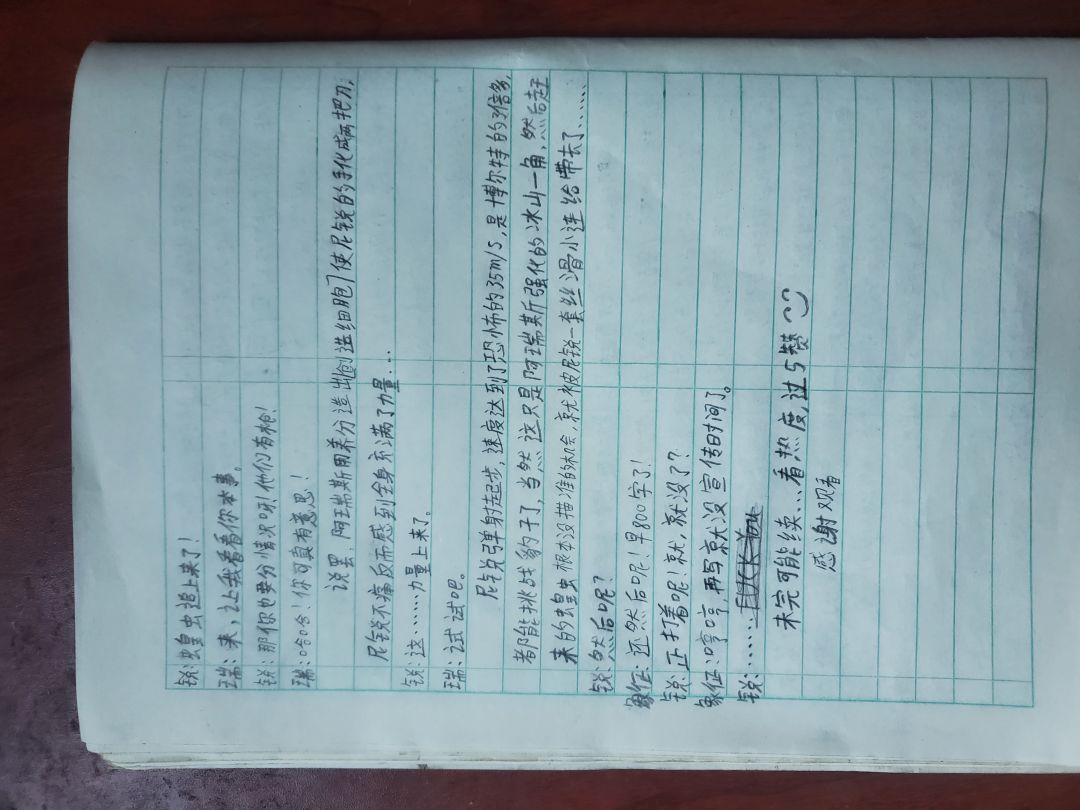 锐:蝗虫追上来了!
瑞:来,让我看看你本事。
锐:那你也要分情况呀!他们有枪!
瑞:哈哈!你可真有意思!
说罢,阿瑞斯用养分造出创造细胞,使尼锐的手化成两把刀,
尼锐不痛反而感到全身充满了力量…
锐:这……力量上来了。
瑞:试试吧。
尼锐弹射起步,速度达到了恐怖的35m/s,是博尔特的3倍多,
都能挑战豹子了,当然这只是阿瑞斯强化的冰山一角,然后赶
来的蝗虫根本没描准的机会,就被尼锐一套丝滑小连给带去了……
锐:然后呢?
象征:还然后呢!早800字了!
锐:正打着呢,就,就没了?
象征:哼哼,再写就没宣传时间了。
锐:……FUCK You
未完可能续…看热度,过5赞
感谢观看